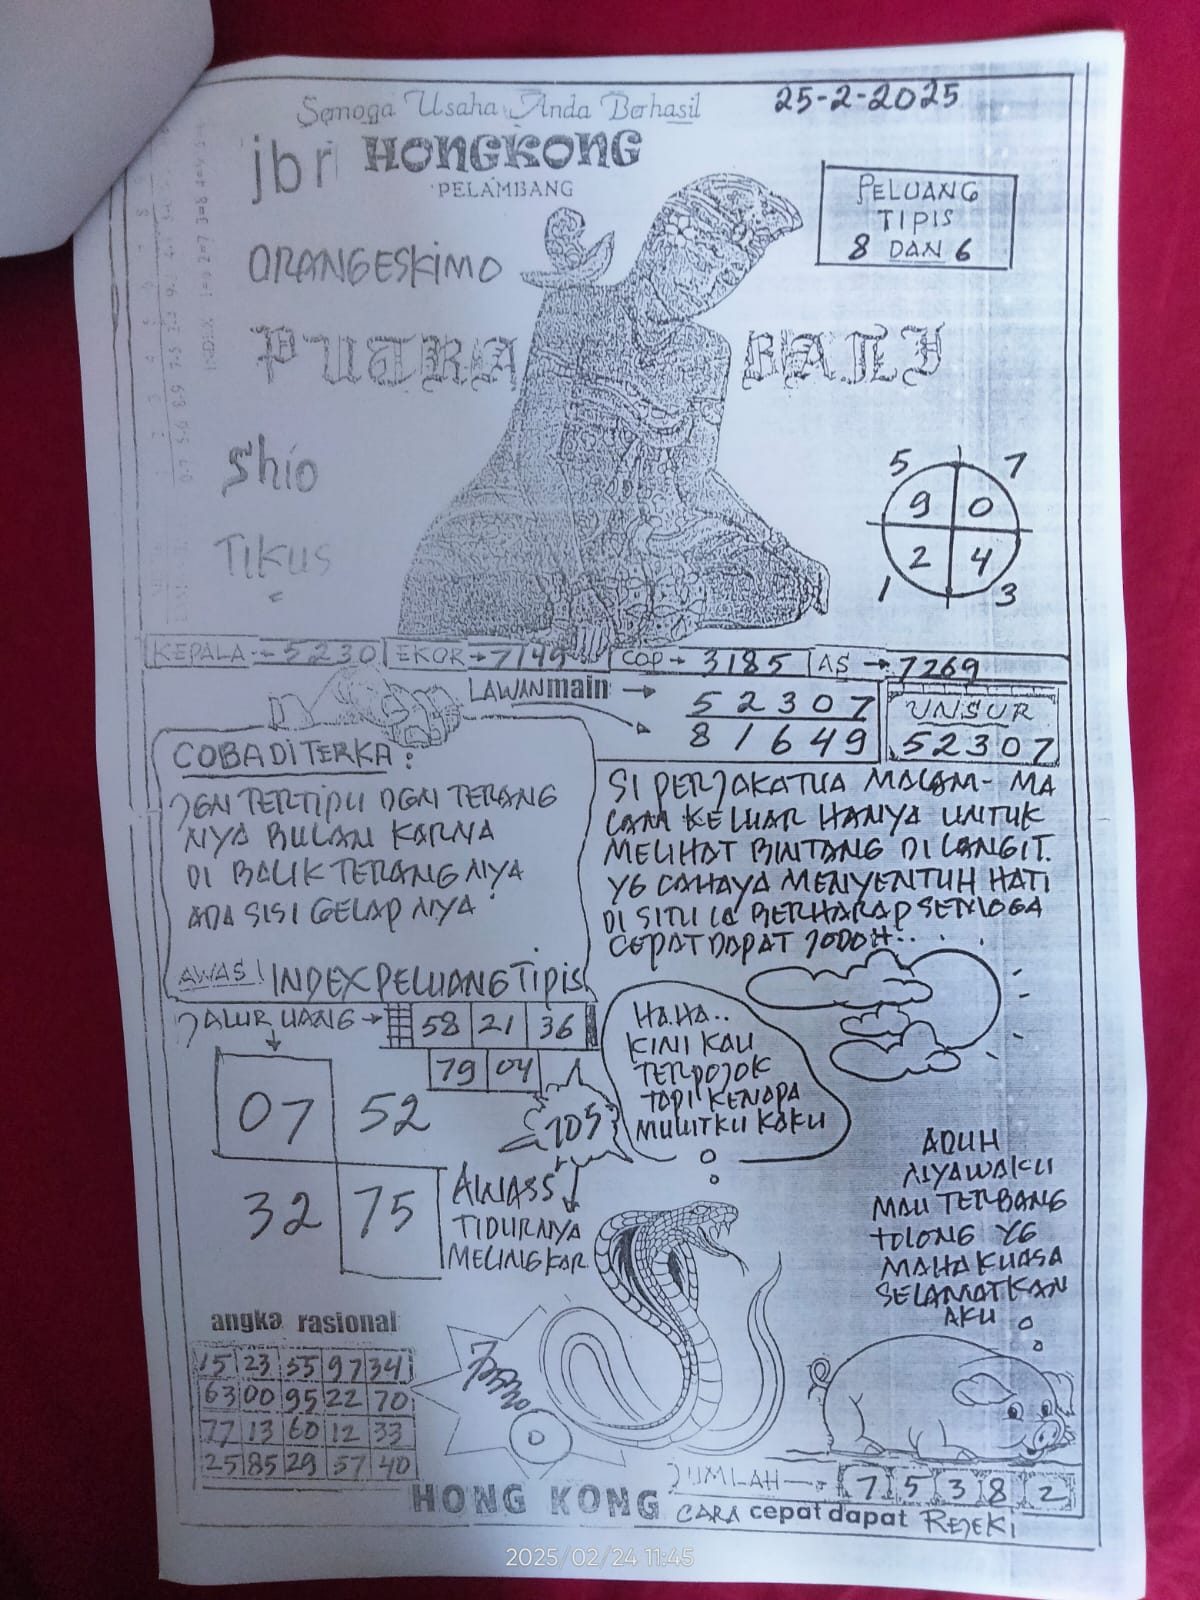 Semoga Usaha Anda Berhasil
25-2-2025
jbr HONGKONG
PELAMBANG
PELUANG
TIPIS
8 DAN 6
ORANGESKIMO
PUTRA BALI
Shio
Tikus
5 7
9 0
2 4
1 3
KEPALA → 5230 EKOR → 7149 COP → 3185 AS → 7269
LAWAN main → 52307
81649
UNSUR
52307
COBA DITERKA:
JGN TERTIPU DGN TERANG
NYA BULAN KARNA
DI BALIK TERANG NYA
ADA SISI GELAP NYA
AWAS! INDEX PELUANG TIPIS
SI PERJAKA TUA MALAM-MA
LAM KELUAR HANYA UNTUK
MELIHAT BINTANG DI LANGIT.
YG CAHAYA MENYENTUH HATI
DI SITU IA BERHARAP SEMOGA
CEPAT DAPAT JODOH...
JALUR UANG → 58 21 36
79 04
07 52
32 75
105
HAHA..
KINI KAU
TERPOJOK
TAPI KENAPA
MULUTKU KAKU
AWASS
TIDURNYA
MELINGKAR
ADUH
NYAWAKU
MAU TERBANG
TOLONG YG
MAHA KUASA
SELAMATKAN
AKU
angka rasional
15 23 55 97 34
63 00 95 22 70
77 13 60 12 33
25 85 29 57 40
0
JUMLAH → 7 5 3 8 2
HONG KONG CARA cepat dapat REJEKI
2025/02/24 11:45